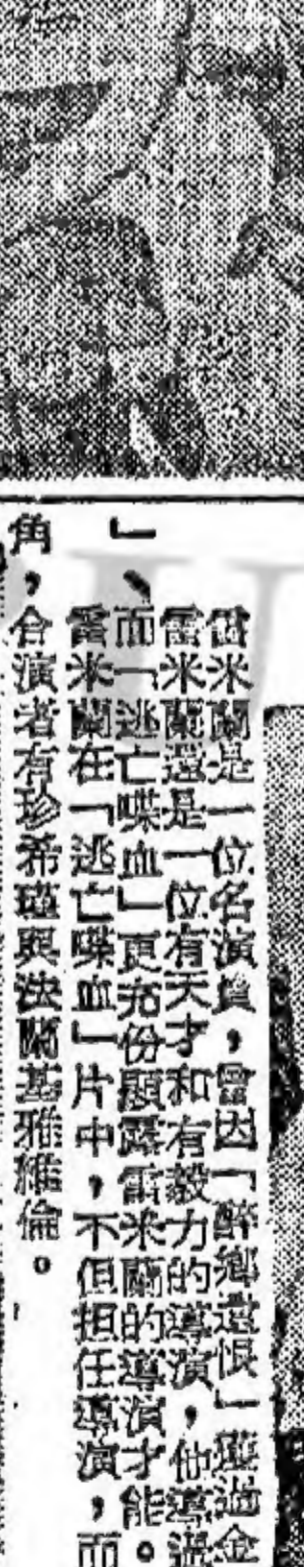 雷米蘭是一位名演員，曾因「醉鄉遺恨」獲過金
雷米蘭還是一位有天才和有毅力的導演，他導過
」、而「逃亡喋血」更充份顯露雷米蘭的導演才能。
雷米蘭在「逃亡喋血」片中，不但担任導演，而
角，合演者有珍希瑾與法蘭基雅維倫。